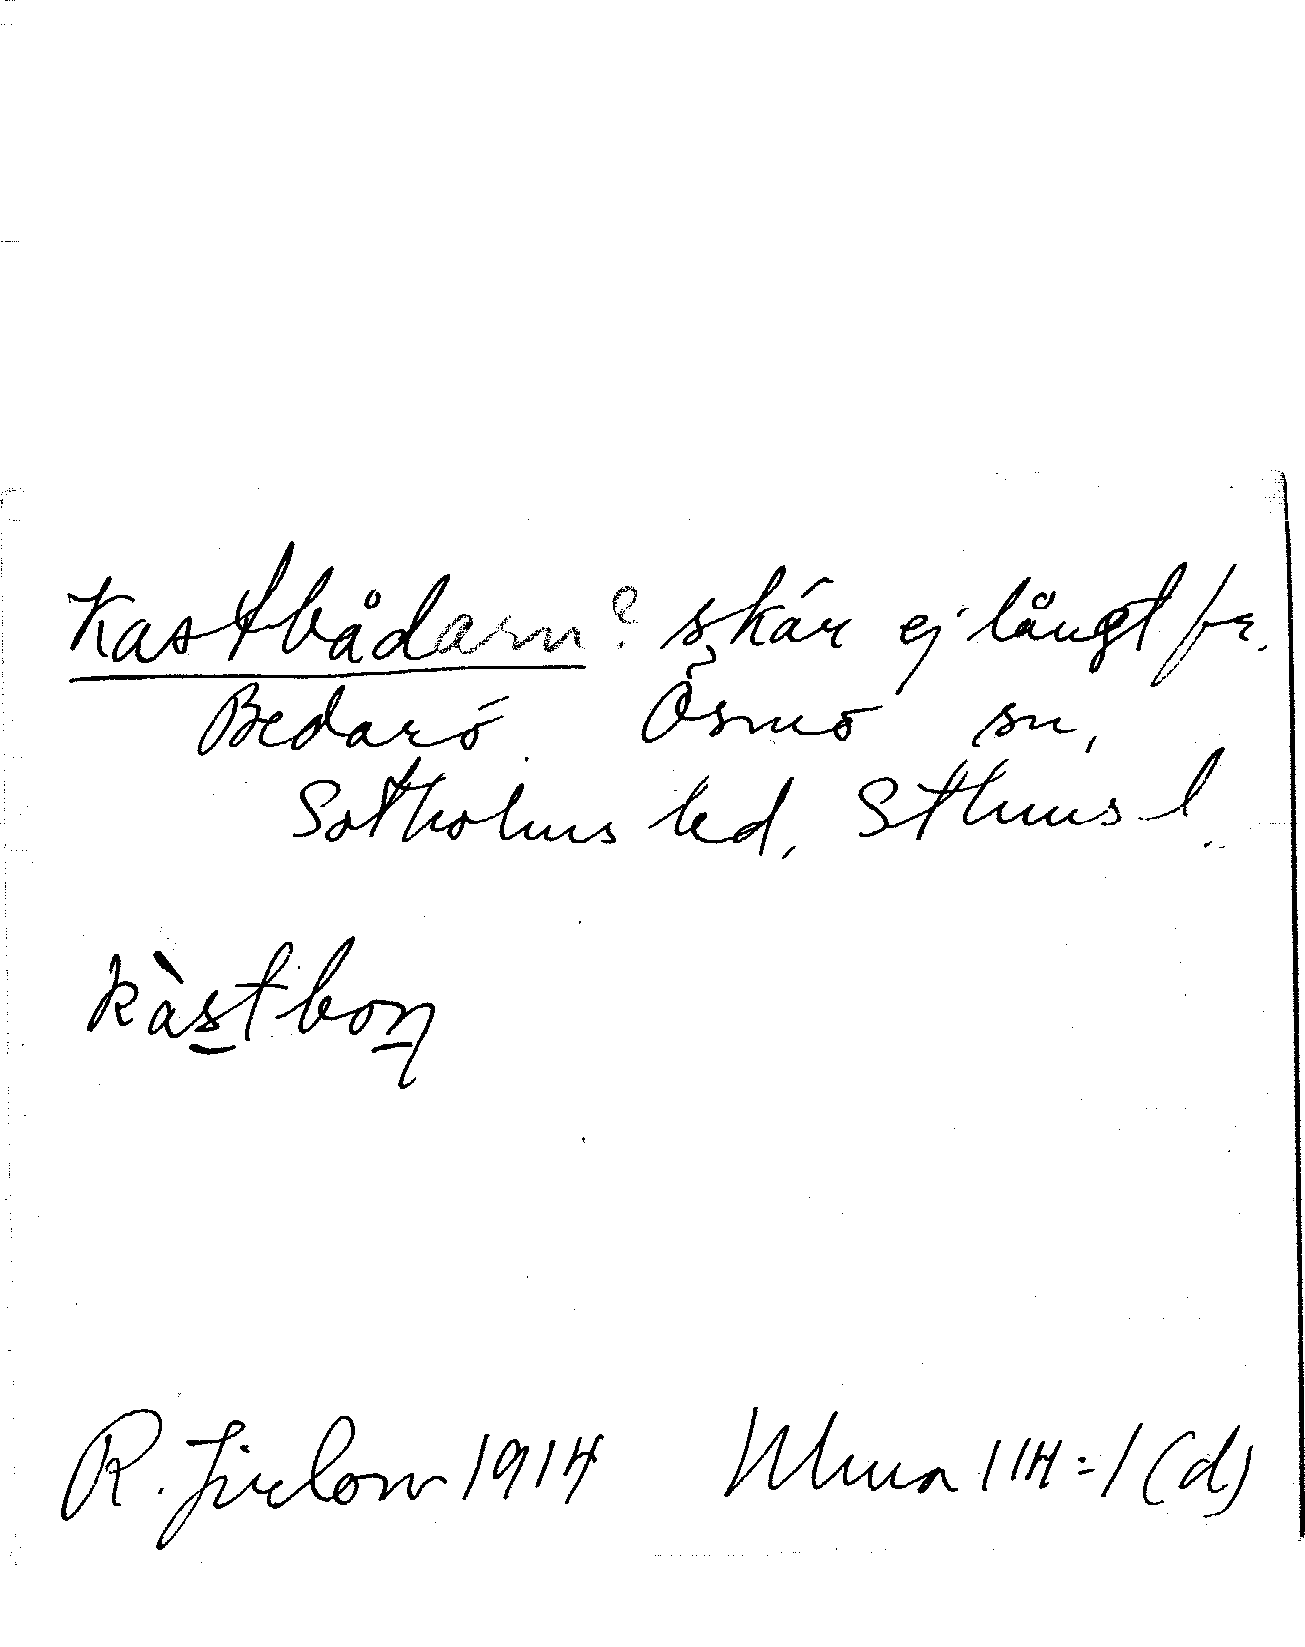 Kastbådarn? skär ej långt fr.
Bedarö. Ösmo sn,
Sotholms hd, Sthms l.
kàstboɳ
R. Jirlow 1914 Muua 114:1 (d)